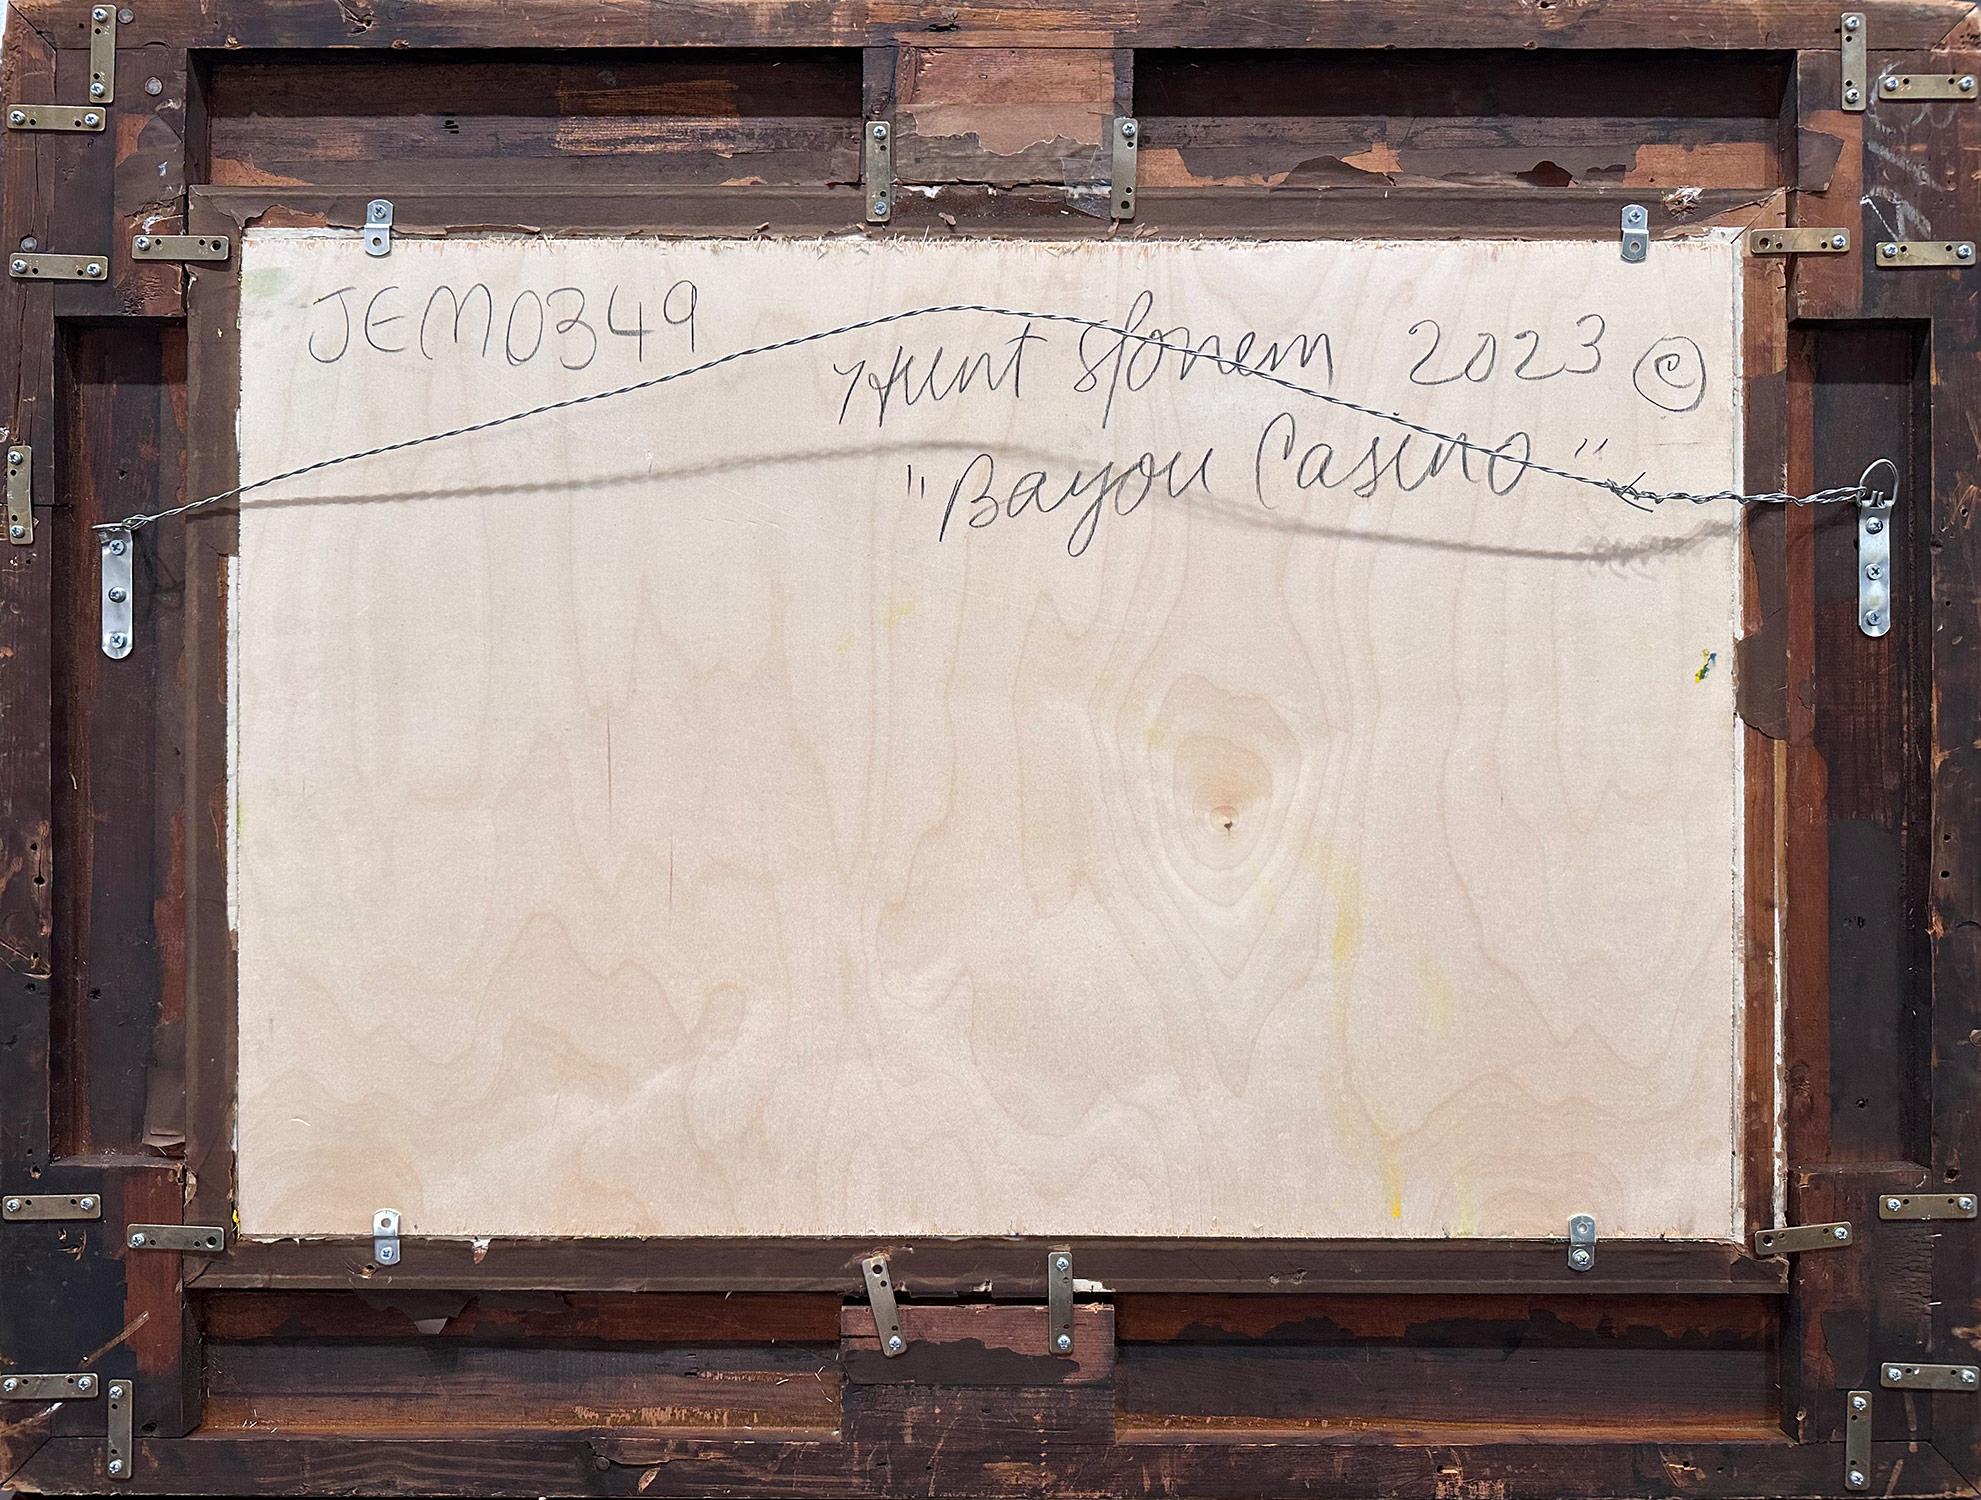 JEM0349
Hunt Slonem 2023 ©
"Bayou Casino"